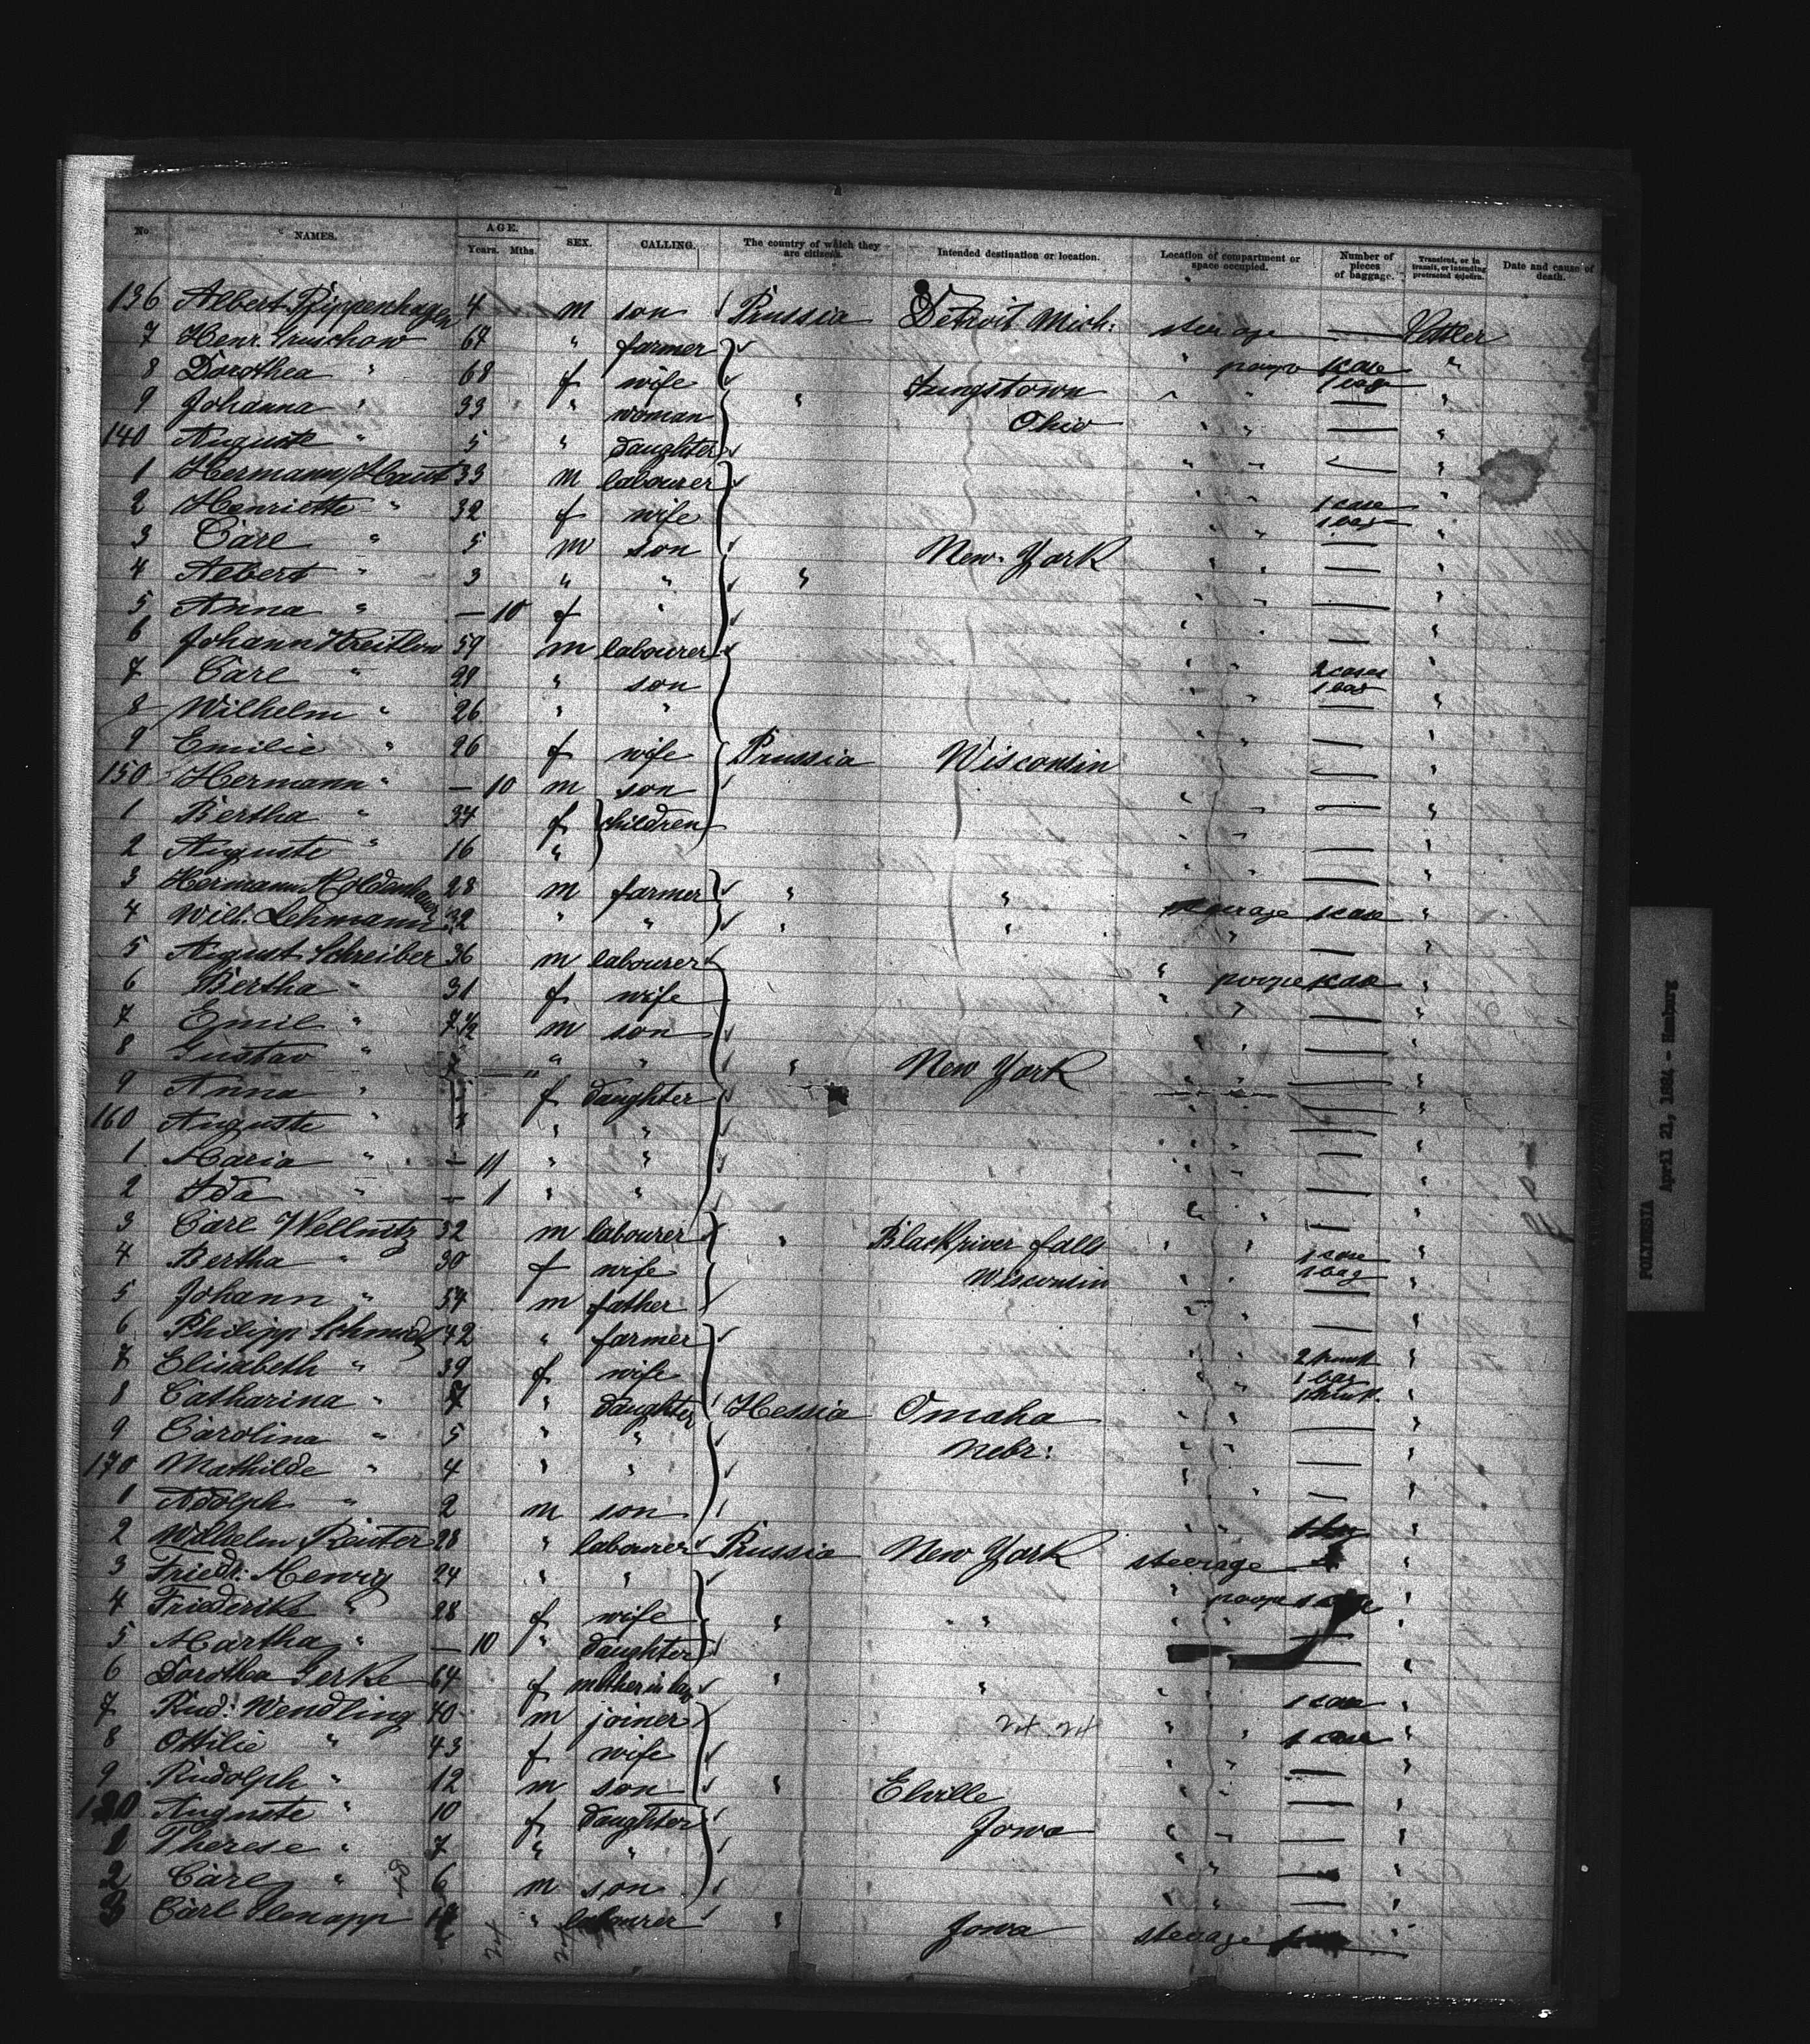 No. NAMES. AGE. Years. Mths. SEX. CALLING. The country of which they are citizens. Intended destination or location. Location of compartment or space occupied. Number of pieces of baggage. Transient, or in transit, or intending protracted sojourn. Date and cause of death.
136 Albert Pippenhagen 4 m son Prussia Detroit Mich: steerage — Settler
7 Henr. Gruschow 67 " farmer " poope 1 case "
8 Dorothea " 68 f wife 1 bag
9 Johanna " 33 " woman " Jungstown — "
140 Auguste " 5 " daughter Ohio — "
1 Hermann Haut 33 m labourer — "
2 Henriette " 32 f wife 1 case 1 bag "
3 Carl " 5 m son New-York — "
4 Albert " 3 " " " — "
5 Anna " — 10 f " — "
6 Johann Kreitlow 59 m labourer — "
7 Carl " 29 " son 2 cases 1 bag "
8 Wilhelm " 26 " " — "
9 Emilie " 26 f wife Prussia Wisconsin — "
150 Hermann " — 10 m son — "
1 Bertha " 34 f children — "
2 Auguste " 16 " — "
3 Hermann Moldenhauer 28 m farmer " " steerage 1 case "
4 Will. Lehmann 32 " " " " " — "
5 August Schreiber 36 m labourer " poope 1 case "
6 Bertha " 31 f wife " " — "
7 Emil " 7½ m son " " — "
8 Gustav " " " " New York " " — "
9 Anna " f daughter — "
160 Auguste " " " " " — "
1 Maria " — 11 " " " " — "
2 Ida " — 1 " " " " — "
3 Carl Wellnitz 32 m labourer " Blackriver falls " " 1 case "
4 Bertha " 30 f wife Wisconsin " " 1 bag "
5 Johann " 54 m father " " — "
6 Philipp Schmidt 42 " farmer — "
7 Elisabeth " 39 f wife " " 2 trunk 1 bag "
8 Catharina " 7 " daughter Hessia Omaha " " 1 trunk "
9 Carolina " 5 " " Nebr: " " — "
170 Mathilde " 4 " " " " — "
1 Adolph " 2 m son — "
2 Wilhelm Reuter 28 " labourer Prussia New York steerage "
3 Friedr: Menvig 24 " " " poope "
4 Friederike " 28 f wife " " " " " — "
5 Martha " — 10 " daughter — "
6 Dorothea Gerke 64 f mother in law " " " 1 case "
7 Rud: Wendling 40 m joiner " " 1 case "
8 Ottilie " 43 f wife " " — "
9 Rudolph " 12 m son " Elville " " — "
180 Auguste " 10 f daughter Iowa " " — "
1 Therese " 7 " " " " — "
2 Carl " 6 m son " " — "
3 Carl " labourer " Iowa steerage "
POLYNESIA April 21, 1884 - Hamburg